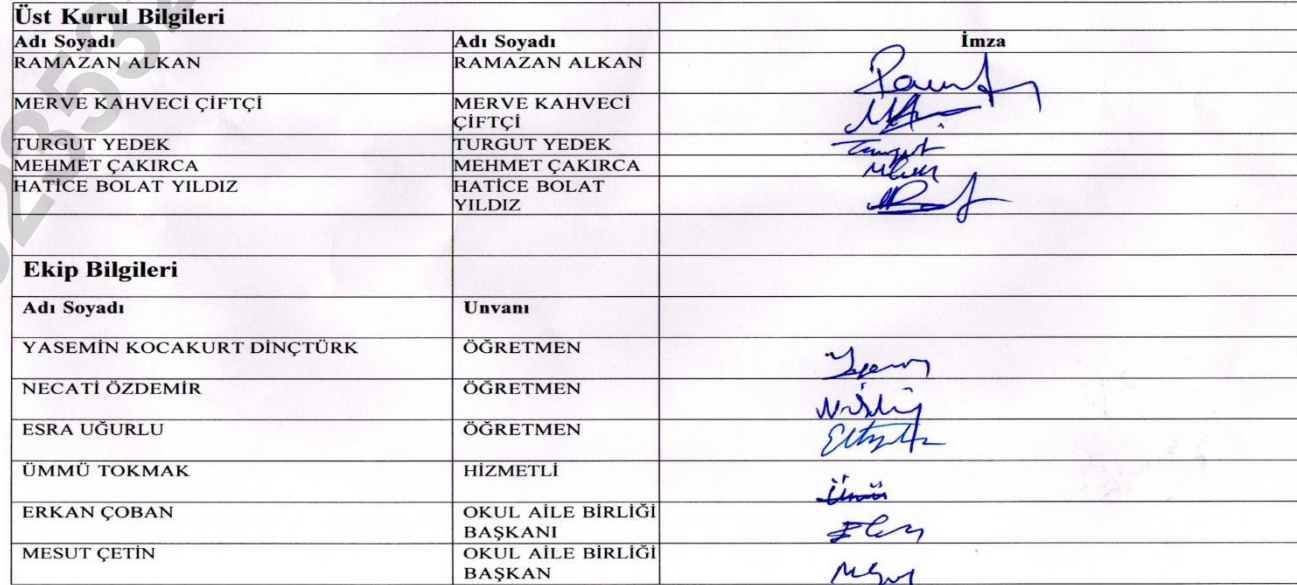 Üst Kurul Bilgileri
Adı Soyadı Adı Soyadı İmza
RAMAZAN ALKAN RAMAZAN ALKAN
MERVE KAHVECİ ÇİFTÇİ MERVE KAHVECİ
ÇİFTÇİ
TURGUT YEDEK TURGUT YEDEK
MEHMET ÇAKIRCA MEHMET ÇAKIRCA
HATİCE BOLAT YILDIZ HATİCE BOLAT
YILDIZ
Ekip Bilgileri
Adı Soyadı Unvanı
YASEMİN KOCAKURT DİNÇTÜRK ÖĞRETMEN
NECATİ ÖZDEMİR ÖĞRETMEN
ESRA UĞURLU ÖĞRETMEN
ÜMMÜ TOKMAK HİZMETLİ
ERKAN ÇOBAN OKUL AİLE BİRLİĞİ
BAŞKANI
MESUT ÇETİN OKUL AİLE BİRLİĞİ
BAŞKAN